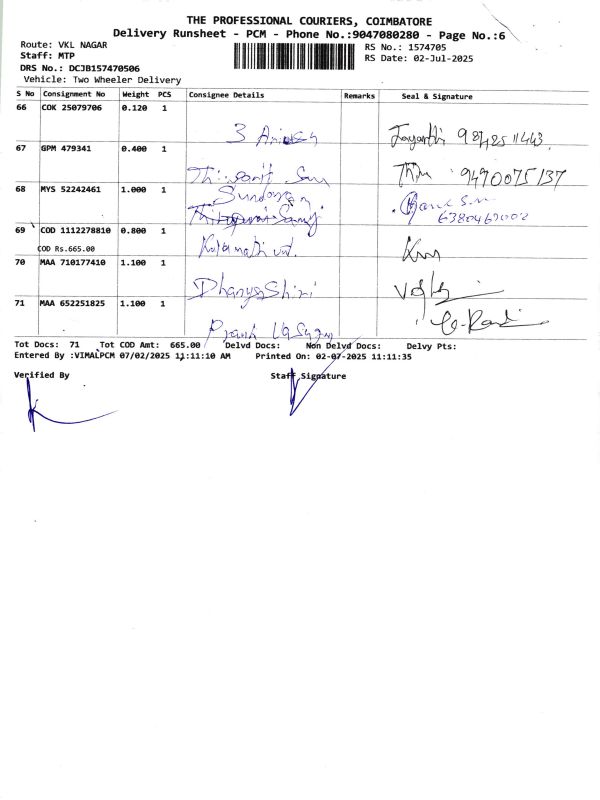 THE PROFESSIONAL COURIERS, COIMBATORE
Delivery Runsheet - PCM - Phone No.:9047080280 - Page No.:6
Route: VKL NAGAR RS No.: 1574705
Staff: MTP RS Date: 02-Jul-2025
DRS No.: DCJB157470506
Vehicle: Two Wheeler Delivery
S No Consignment No Weight PCS Consignee Details Remarks Seal & Signature
66 COK 25079706 0.120 1
3 Jayanthi
67 GPM 479341 0.400 1
9470075137
68 MYS 52242461 1.000 1
69 COD 1112278810 0.800 1
COD Rs.665.00
70 MAA 710177410 1.100 1
DhanyaShini
71 MAA 652251825 1.100 1
Tot Docs: 71 Tot COD Amt: 665.00 Delvd Docs: Non Delvd Docs: Delvy Pts:
Entered By :VIMALPCM 07/02/2025 11:11:10 AM Printed On: 02-07-2025 11:11:35
Verified By Staff Signature